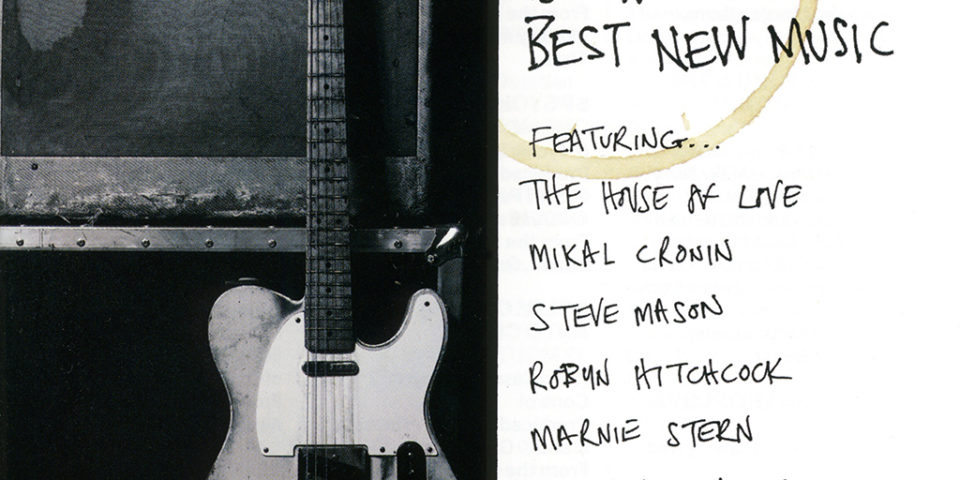 BEST NEW MUSIC
FEATURING...
THE HOUSE OF LOVE
MIKAL CRONIN
STEVE MASON
ROBYN HITCHCOCK
MARNIE STERN